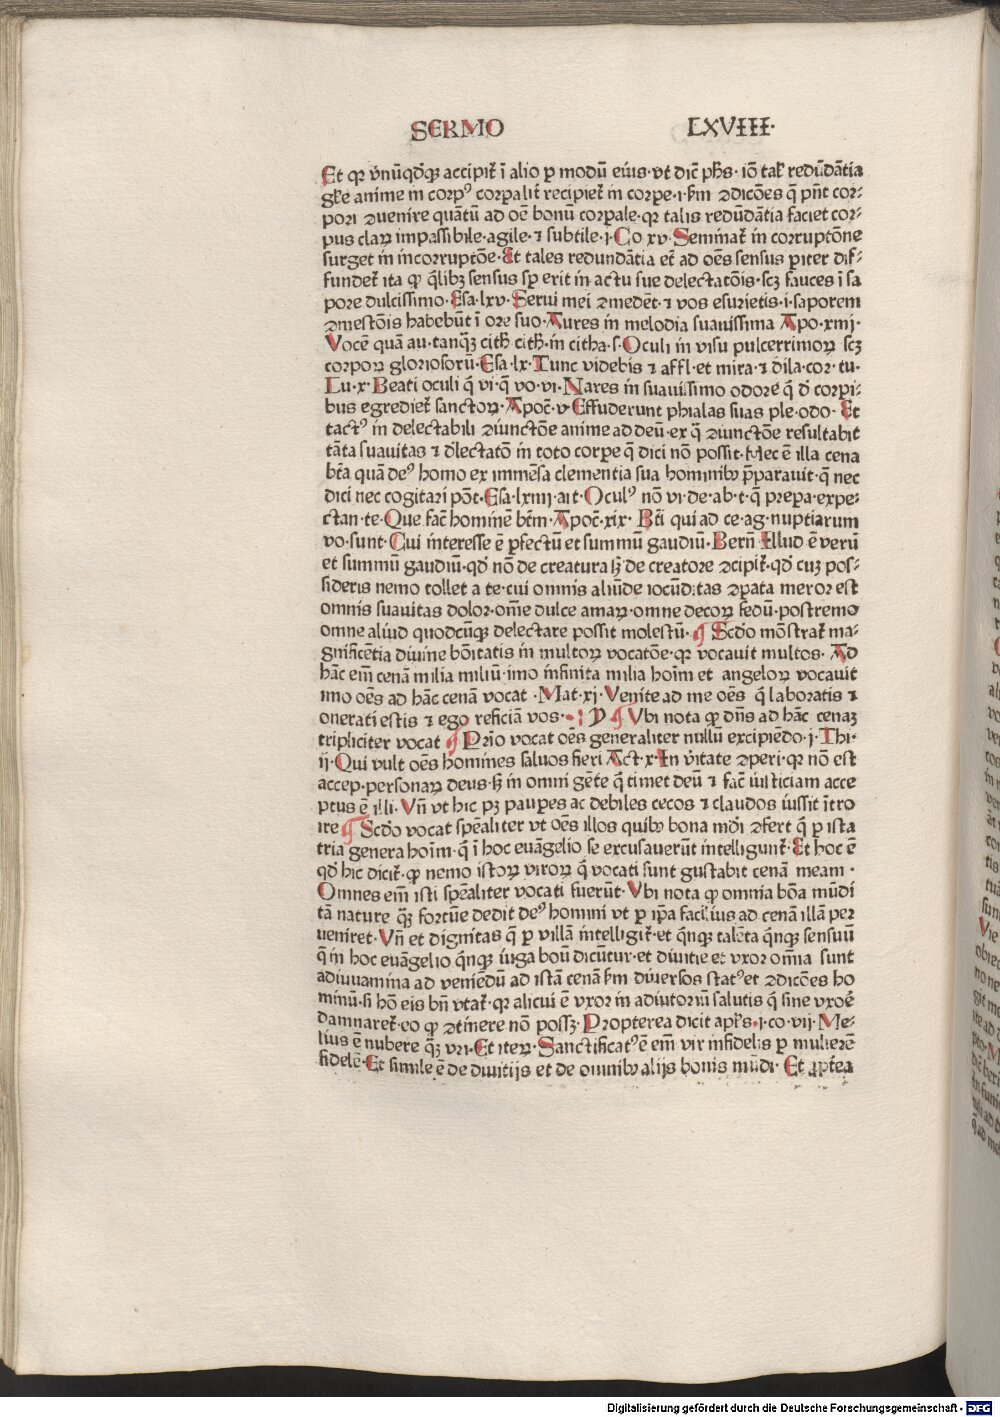 SERMO LXVIII·
Et qꝛ vnūqḋqꝫ accipit᷑ ī alio ꝑ modū eiuis·vt dic̄ ph̄s· iō tal᷑ redūdātia
gl̄e anime in corpꝰ corꝑalit᷑ recipiet᷑ in corꝑe·i·ẜm ꝯdicōes q̄ pn̄t cor⸗
pori ꝯuenire quātū ad oē bonū corꝑale·qꝛ talis redūdātia faciet cor⸗
pus claꝝ impassibile·agile·⁊ subtile·j·Co xv·Seminat᷑ in corruptōne
surget in incorruptōe·Et tales redundātia et̄ ad oēs sensus ꝑiter dif⸗
fundet᷑ ita ꝙ q̄libꝫ sensus sꝑ erit in actu sue delectatōis·scꝫ fauces ī sa
pore dulcissimo·Esa·lxv·Serui mei ꝯmedēt·⁊ vos esurietis·i·saporem
ꝯmestōis habebūt ī ore suo·Aures in melodia suauissima Apo·xiiij·
Vocē quā au·tanqꝫ̄ cith̄ cith̄·in citha·s·Oculi in visu pulcerrimoꝝ scꝫ
corpoꝝ gloriosorū·Esa·lx·Tunc videbis ⁊ affl·et mira·⁊ dīla·cor·tu·
Lu·x·Beati oculi q̄ vi·q̄ vo·vi·Nares in suauissimo odore q̄ d̄ corpi⸗
bus egrediet᷑ sanctoꝝ·Apoc̄·v Effuderunt phialas suas ple·odo· Et
tactꝰ in delectabili ꝯiunctōe anime ad deū·ex q̄ ꝯiunctōe resultabit
tāta suauitas ⁊ d̄lectatō in toto corꝑe q̄ dici nō possit·Hec ē illa cena
bt̄a quā deꝰ homo ex immēsa clementia sua hominibꝰ p̄parauit·q̄ nec
dici nec cogitari pōt·Esa·lxiiij·ait·Oculꝰ nō vi·de·ab·t·q̄ prepa·expe⸗
ctan·te·Que fac̄ hominē bt̄m·Apoc̄·xix· Bt̄i qui ad ce·ag·nuptiarum
vo·sunt·Cui interesse ē ꝑfectū et summū gaudiū·Bern̄ Illud ē verū
et summū gaudiū·qḋ nō de creatura sꝫ de creatore ꝯcipit᷑·qḋ cuꝫ pos⸗
sideris nemo tollet a te·cui omnis aliūde iocūditas ꝯpata meror est
omnis suauitas dolor·om̄e dulce amaꝝ·omne decoꝝ fedū·postremo
omne aliud quodcūqꝫ delectare possit molestū· ¶ Scḋo mōstrat᷑ ma⸗
gnificētia diuine bōitatis in multoꝝ vocatōe·qꝛ vocauit multos· Ad
hāc em̄ cenā milia miliū·imo infinita milia hoīm et angeloꝝ vocauit
imo oēs ad hāc cenā vocat ·Mat·xj·Venite ad me oēs q̄ laboratis ⁊
onerati estis ⁊ ego reficiā vos· D ¶ Vbi nota ꝙ dn̄s ad hāc cenaꝫ
tripliciter vocat ¶ Prīo vocat oēs generaliter nullū excipiēdo·j·Thi·
ij·Qui vult oēs homines saluos fieri Act·x·In v̄itate ꝯperi·qꝛ nō est
accep·personaꝝ deus·sꝫ in omni gēte q̄ timet deū ⁊ fac̄ iusticiam acce
ptus ē illi·Vn̄ vt hic pꝫ pauꝑes ac debiles cecos ⁊ claudos iussit ītro
ire ¶ Scḋo vocat spēaliter vt oēs illos quibꝰ bona mūdi ꝯfert q̄ ꝑ ista
tria genera hoīm·q̄ ī hoc euāgelio se excusauerūt intelligunt᷑·Et hoc ē
qḋ hic dicit᷑·ꝙ nemo istoꝝ viroꝝ q̄ vocati sunt gustabit cenā meam·
Omnes em̄ isti spēaliter vocati fuerūt·Vbi nota ꝙ omnia bōa mūdi
tā nature qꝫ̄ fortūe dedit deꝰ homini vt ꝑ ip̄a facilius ad cenā illā per
ueniret·Vn̄ et dignitas q̄ ꝑ villā intelligit᷑·et q̄nqꝫ talēta q̄nqꝫ sensuū
q̄ in hoc euāgelio q̄nqꝫ iuga boū dicūtur·et diuitie et vxor om̄ia sunt
adiuuamina ad veniēdū ad istā cenā ẜm diuersos statꝰ et ꝯdicōes ho
minū·si hō eis bn̄ vtat᷑·qꝛ alicui ē vxor in adiutoriū salutis q̄ sine vxoē
damnaret᷑·eo ꝙ ꝯtinere nō possꝫ·Propterea dicit apl̄s·i·co·vij·Me⸗
lius ē nubere qꝫ̄ vri·Et iteꝝ·Sanctificatꝰ ē em̄ vir infidelis ꝑ mulierē
fidelē·Et simile ē de diuitijs et de omnibꝰ alijs bonis mūdi· Et ꝓpt̄ea
Digitalisierung gefördert durch die Deutsche Forschungsgemeinschaft - DFG